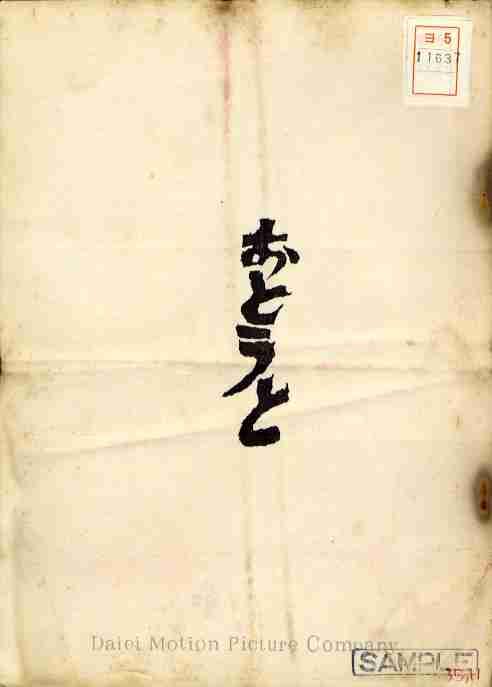 ヨ 5
11637
おとうと
Daiei Motion Picture Company
SAMPLE
35.11